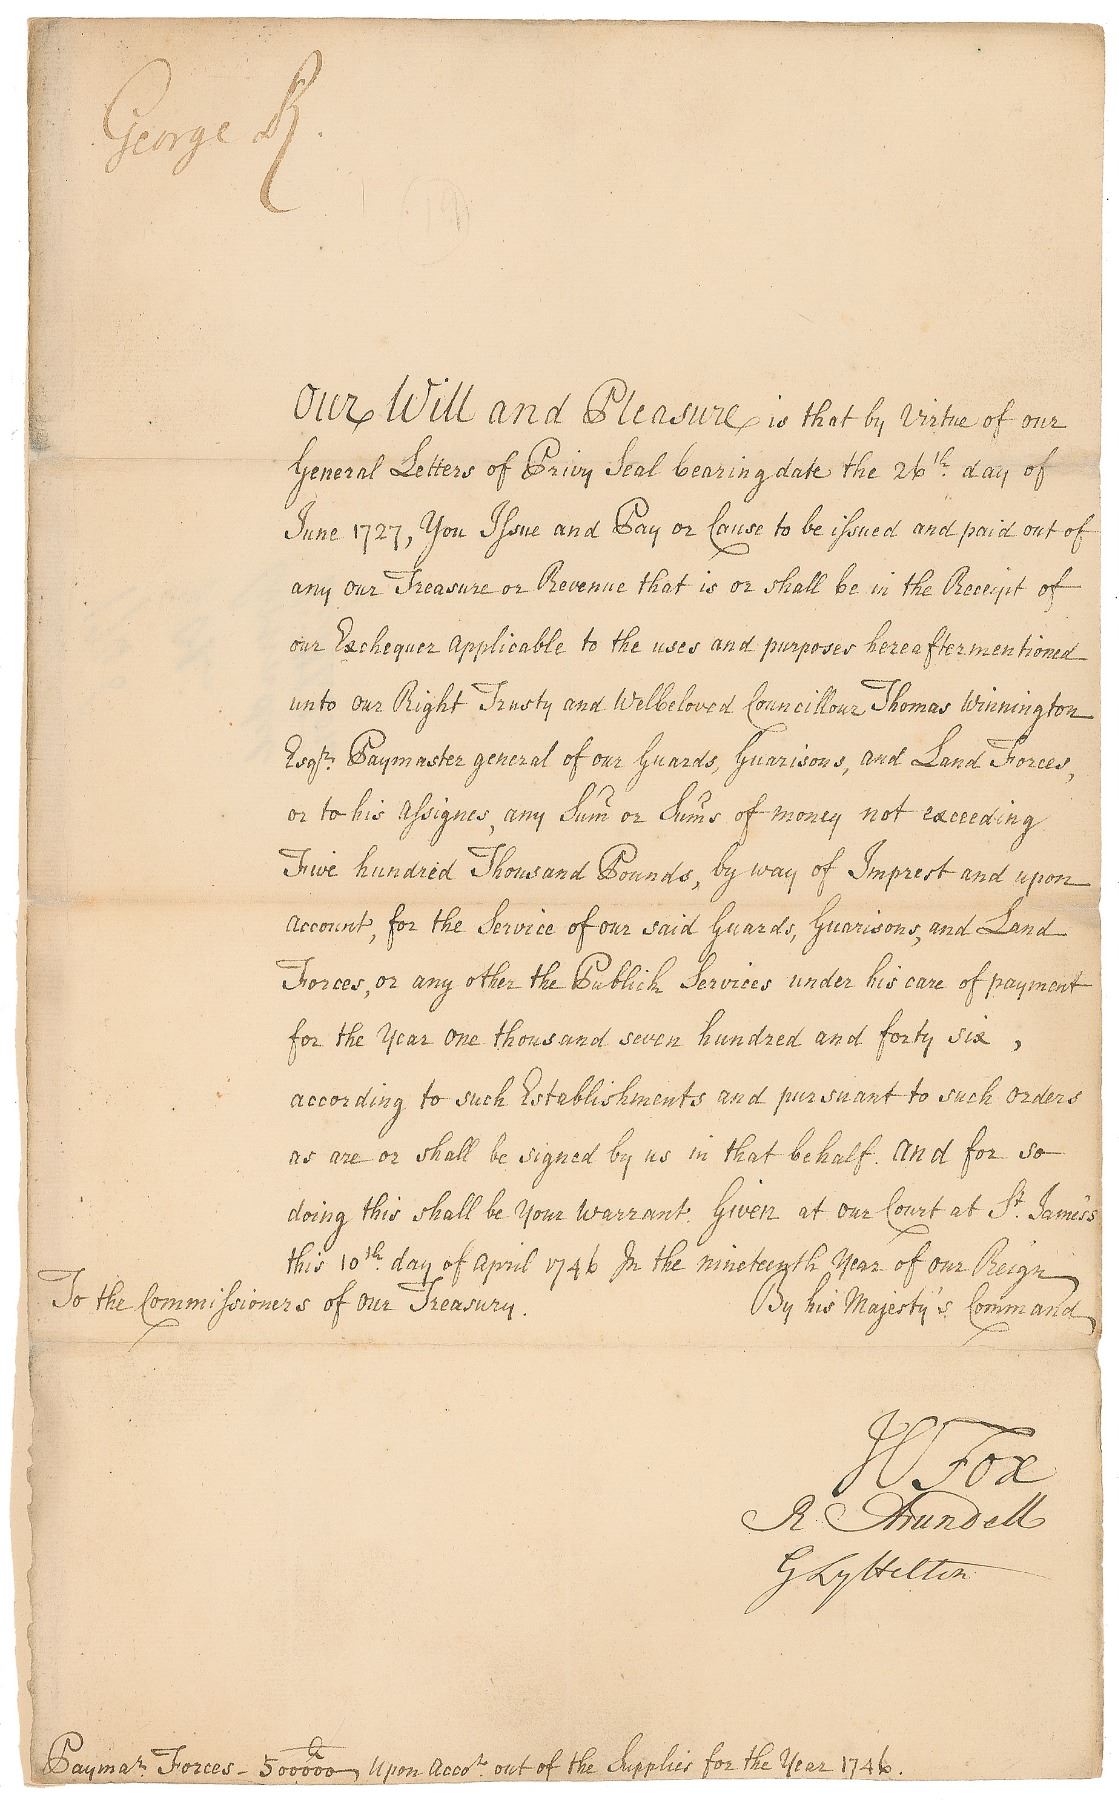 George R.
Our Will and Pleasure is that by Virtue of our
General Letters of Privy Seal bearing date the 26th. day of
June 1727, You Issue and Pay or Cause to be issued and paid out of
any our Treasure or Revenue that is or shall be in the Receipt of
our Exchequer applicable to the uses and purposes hereaftermentioned
unto our Right Trusty and Welbeloved Councillour Thomas Winnington
Esqr. Paymaster general of our Guards, Guarisons, and Land Forces,
or to his Assignes, any Sum or Sums of money not exceeding
Five hundred Thousand Pounds, by way of Imprest and upon
Account, for the Service of our said Guards, Guarisons, and Land
Forces, or any other the Publick Services under his care of payment
for the Year One thousand seven hundred and forty six,
according to such Establishments and pursuant to such Orders
as are or shall be signed by us in that behalf. And for so
doing this shall be Your Warrant. Given at our Court at St. James's
this 10th. day of April 1746 In the nineteenth Year of our Reign
To the Commissioners of Our Treasury. By his Majesty's Command,
H Fox
R Arundell
G Lyttelton
Paymar. Forces - 500000 Upon Accot. out of the Supplies for the Year 1746.